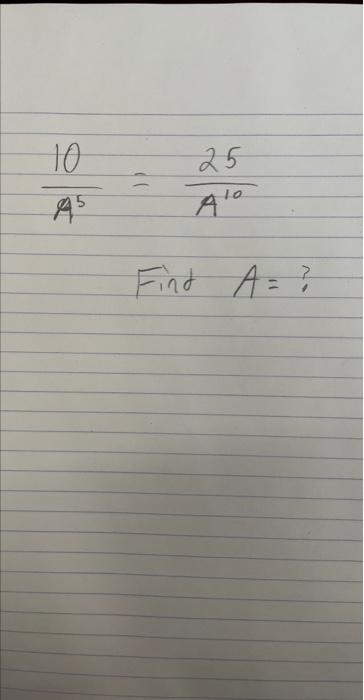 10/A⁵ = 25/A¹⁰
Find A = ?